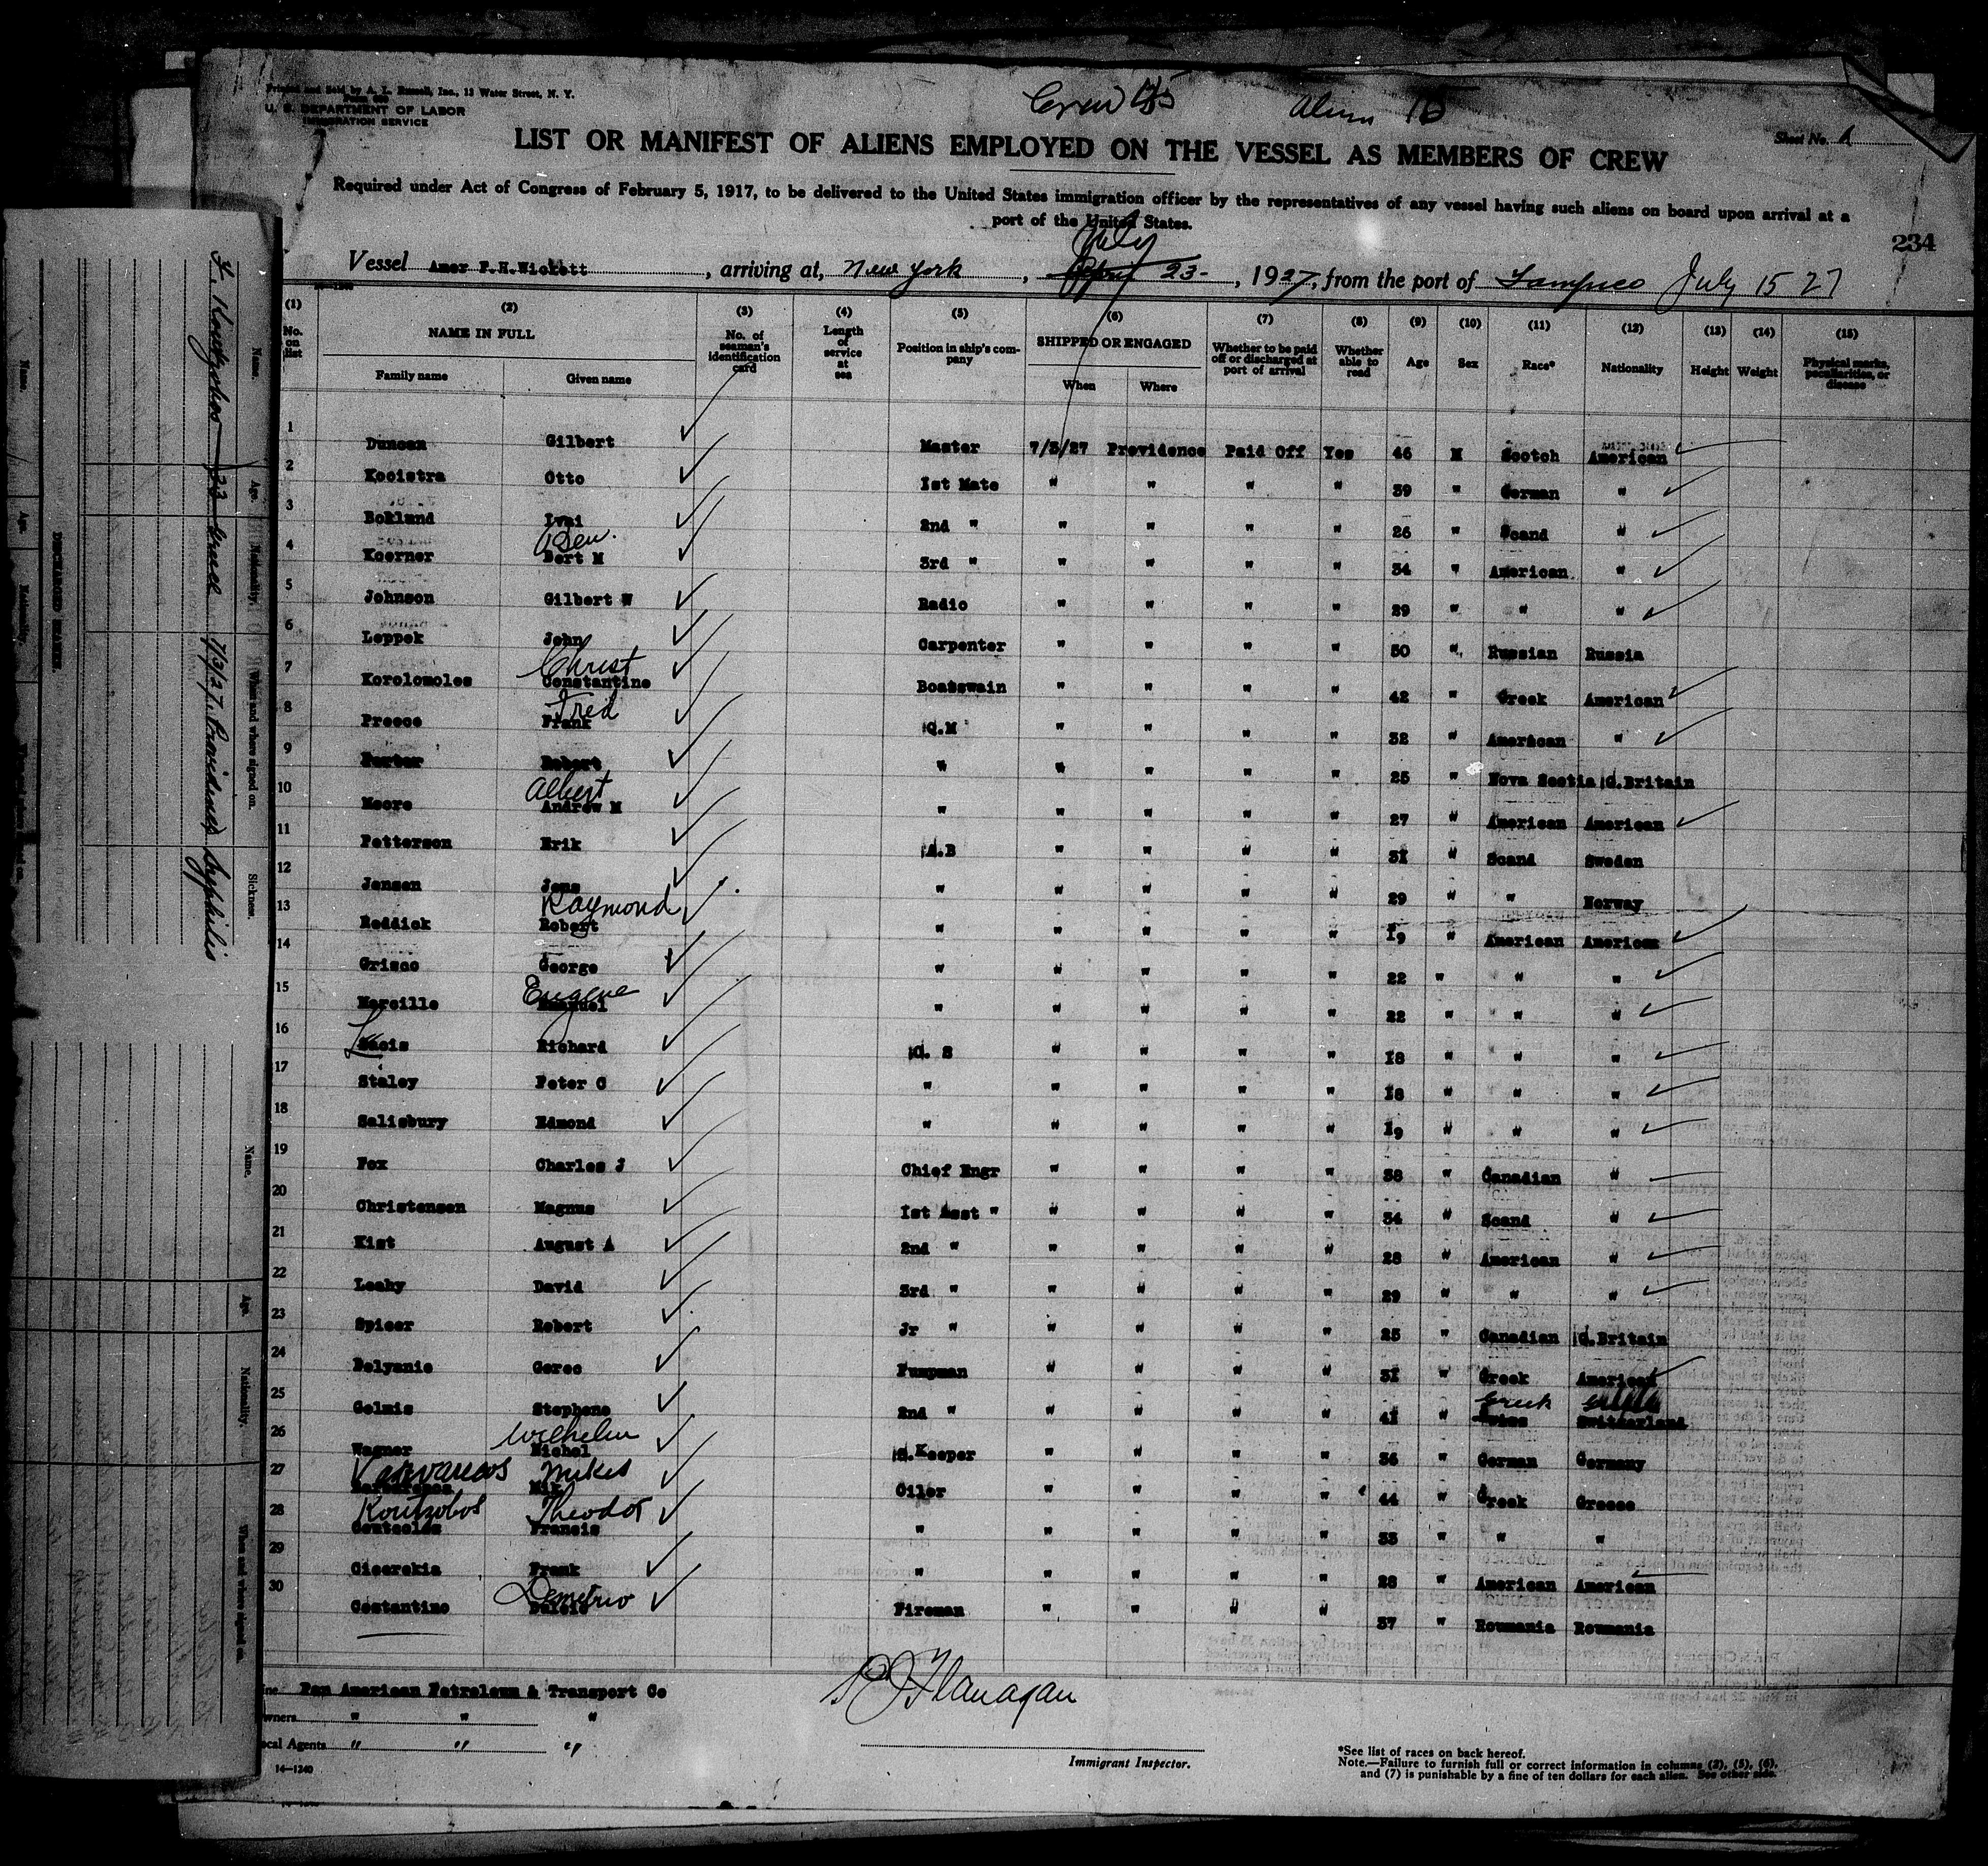 Printed and Sold by A. L. Russell, Inc., 13 Water Street, N. Y.
U. S. DEPARTMENT OF LABOR
IMMIGRATION SERVICE
Crew 45 Aliens 15
Sheet No. 1
LIST OR MANIFEST OF ALIENS EMPLOYED ON THE VESSEL AS MEMBERS OF CREW
Required under Act of Congress of February 5, 1917, to be delivered to the United States immigration officer by the representatives of any vessel having such aliens on board upon arrival at a
port of the United States.
234
July
Vessel Amer F.H.Wickett, arriving at, New York, April 23-, 1927, from the port of Tampico July 15 27
(1) (2) (3) (4) (5) (6) (7) (8) (9) (10) (11) (12) (13) (14) (15)
No. on list NAME IN FULL No. of seaman's identification card Length of service at sea Position in ship's company SHIPPED OR ENGAGED Whether to be paid off or discharged at port of arrival Whether able to read Age Sex Race* Nationality Height Weight Physical marks, peculiarities, or disease
Family name Given name When Where
1 Duncan Gilbert Master 7/3/27 Providence Paid Off Yes 46 M Scotch American
2 Kooistra Otto 1st Mate " " " " 39 " German "
3 Boklund Ivai 2nd " " " " " 26 " Scand "
Ben.
4 Koerner Bert M 3rd " " " " " 34 " American "
5 Johnson Gilbert W Radio " " " " 29 " " "
6 Leppek John Carpenter " " " " 50 " Russian Russia
Christ
7 Korolomoles Constantine Boatswain " " " " 42 " Greek American
Fred
8 Preece Frank Q.M " " " " 32 " American "
9 Porter Robert " " " " " 25 " Nova Scotia G.Britain
Albert
10 Moore Andrew M " " " " " 27 " American American
11 Petterson Erik A.B " " " " 31 " Scand Sweden
12 Jensen Jens " " " " " 29 " " Norway
Raymond
13 Reddick Robert " " " " " 19 " American American
14 Grisco George " " " " " 22 " " "
Eugene
15 Marcille Emanuel " " " " " 22 " " "
16 Richard O. S " " " " 18 " " "
17 Staley Peter C " " " " " 18 " " "
18 Salisbury Edmond " " " " " 19 " " "
19 Fox Charles J Chief Engr " " " " 38 " Canadian "
20 Christensen Magnus 1st Asst " " " " " 34 " Scand "
21 Kist August A 2nd " " " " " 28 " American "
22 Leahy David 3rd " " " " " 29 " " "
23 Spicer Robert Jr " " " " " 25 " Canadian G.Britain
24 Belyanis Gerec Pumpman " " " " 31 " Greek American
Greek
25 Gelmis Stephens 2nd " " " " " 41 " Swiss Switzerland
Wilhelm
26 Wagner Michel S.Keeper " " " " 36 " German Germany
Varvareos Mikes
27 Mik Oiler " " " " 44 " Greek Greece
Koutzobos Theodor
28 Francis " " " " " 33 " " "
29 Giserekia Frank " " " " " 28 " American American
Demetrio
30 Costantino Fireman " " " " 37 " Roumania Roumania
Line Pan American Petroleum & Transport Co
Owners " " "
Local Agents " " "
14-1240
Flanagan
Immigrant Inspector.
*See list of races on back hereof.
Note.—Failure to furnish full or correct information in columns (2), (5), (6),
and (7) is punishable by a fine of ten dollars for each alien. See other side.
Name. Age. Nationality. When and where signed on. Sickness.
33 Greece 7/3/27, Providence Syphilis
DISCHARGED SEAMEN.
Name. Age. Nationality.
Name. Age. Nationality. When and where signed on.